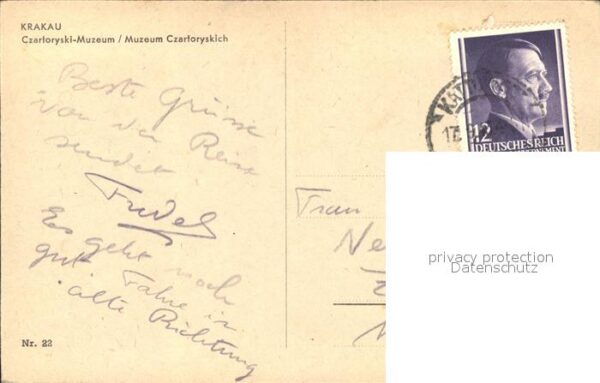 KRAKAU
Czartoryski-Muzeum / Muzeum Czartoryskich
Beste Grüsse
von der Reise
sendet
Es geht noch
gut Fahre in
alte Richtung
Nr. 22
12
DEUTSCHES REICH
Frau
Ne
privacy protection
Datenschutz